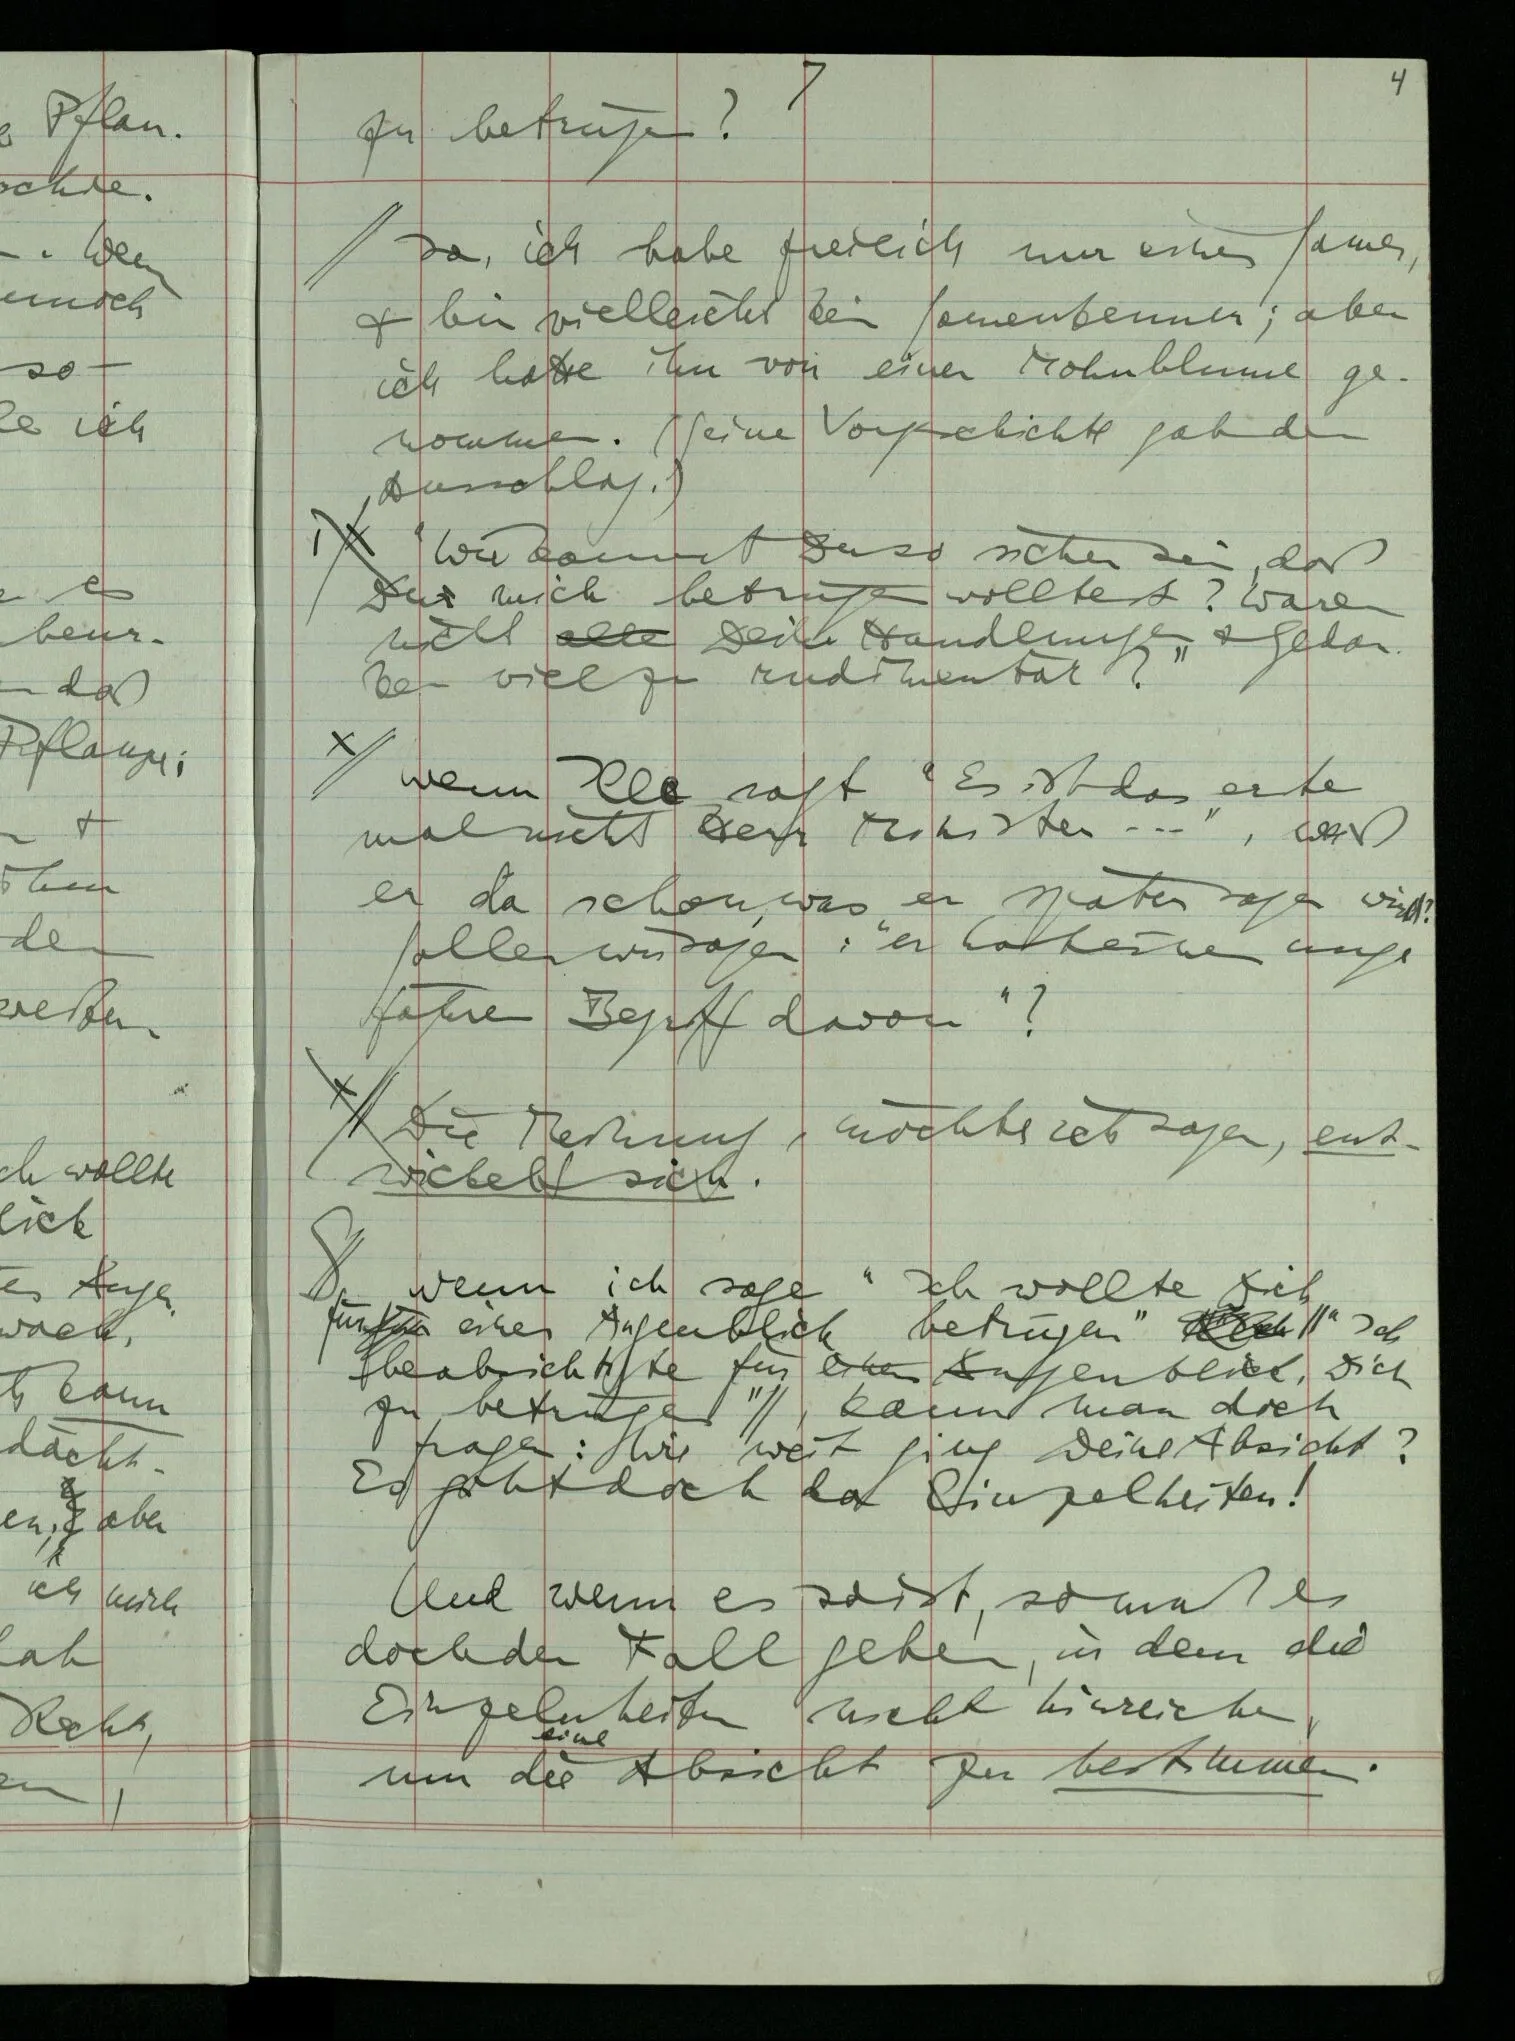 Pflan.
ochte.
Wenn
ennoch
so-
ich
es
beur-
daß
Pflanze;
+
den
ch wollte
lich
Augen
kann
dacht-
en, aber
ich mich
hab
Recht,
7
4
zu betrügen?
// Ja, ich habe freilich nur einen Samen,
& bin vielleicht kein Samenkenner; aber
ich hatte ihn von einer Mohnblume ge-
nommen. (Seine Vorgeschichte gab den
Ausschlag.)
"Wie kannst Du so sicher sein, daß
Du mich betrügen wolltest? Waren
nicht alle Deine Handlungen & Gedan-
ken viel zu rudimentär?"
x // Wenn Einer sagt "Es ist das erste
mal nicht Herr Minister ---", weiß
er da schon, was er später sagen wird?
Sollen wir sagen: "er hat einen unge
fähren Begriff davon"?
x // Die Meinung, möchte ich sagen, ent-
wickelt sich.
Wenn ich sage "Ich wollte Dich
für einen Augenblick betrügen" //"Ich
beabsichtigte für einen Augenblick, Dich
zu betrügen"//, kann man doch
fragen: Wie weit ging Deine Absicht?
Es gibt doch da Einzelheiten!
Und wenn es so ist, so muß es
doch den Fall geben, in dem die
Einzelnheiten nicht hinreichen,
eine
um die Absicht zu bestimmen.